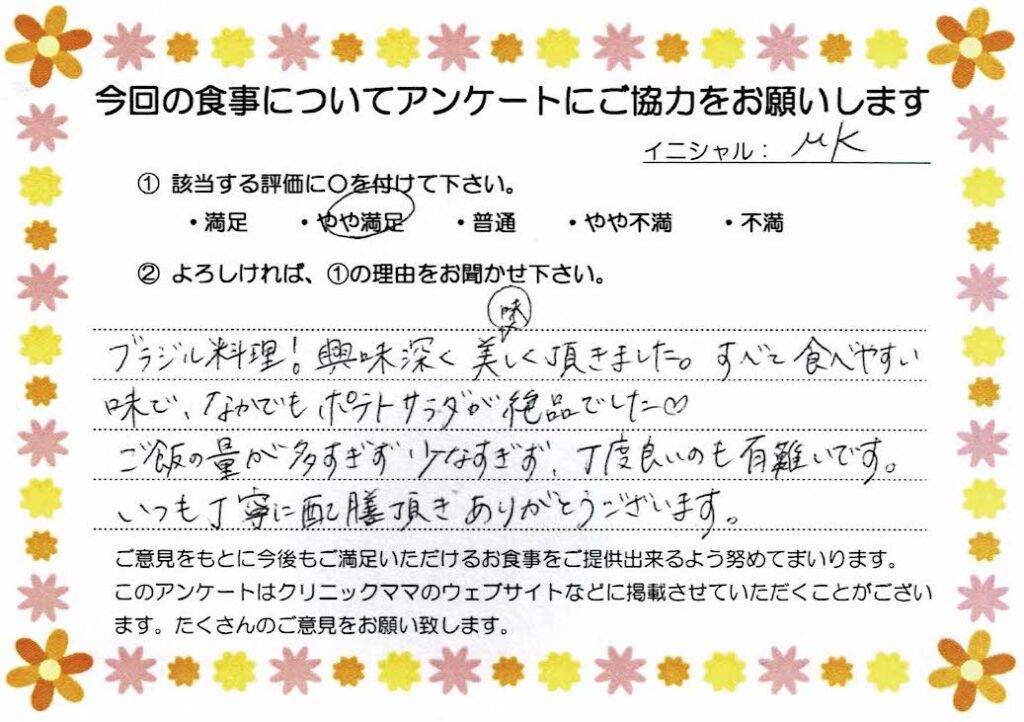 今回の食事についてアンケートにご協力をお願いします
イニシャル： MK
① 該当する評価に〇を付けて下さい。
・満足 ・やや満足 ・普通 ・やや不満 ・不満
② よろしければ、①の理由をお聞かせ下さい。
味
ブラジル料理！興味深く美しく頂きました。すべて食べやすい
味で、なかでもポテトサラダが絶品でした♡
ご飯の量が多すぎず少なすぎず、丁度良いのも有難いです。
いつも丁寧に配膳頂きありがとうございます。
ご意見をもとに今後もご満足いただけるお食事をご提供出来るよう努めてまいります。
このアンケートはクリニックママのウェブサイトなどに掲載させていただくことがござい
ます。たくさんのご意見をお願い致します。